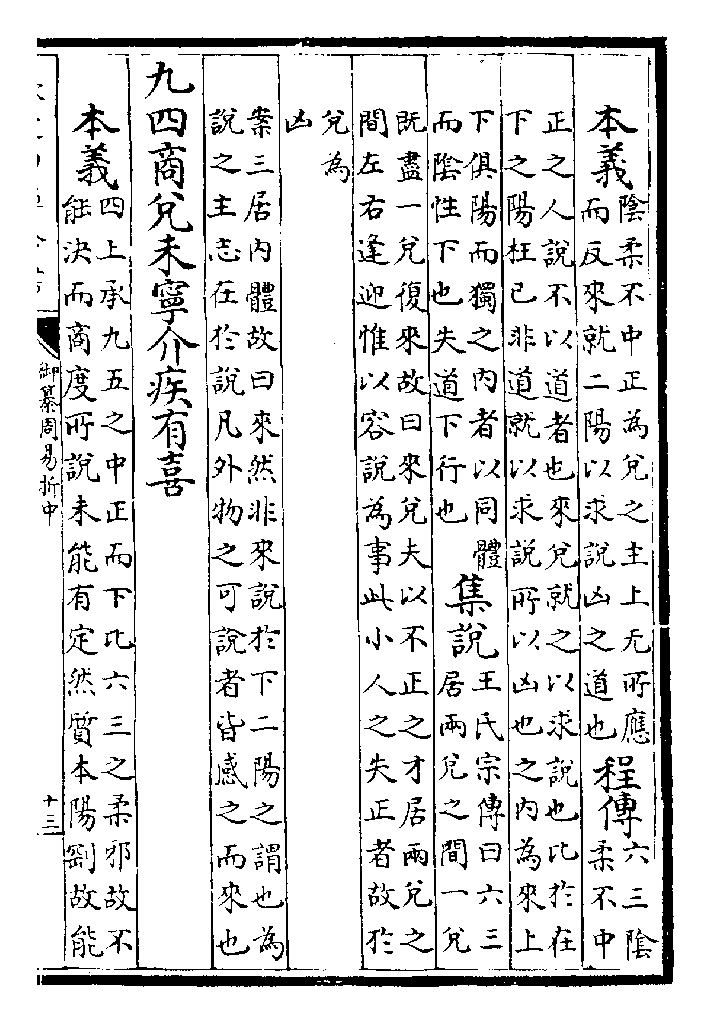 本義陰柔不中正為兌之主上无所應
而反來就二陽以求說凶之道也
程傳六三陰
柔不中
正之人說不以道者也來兌就之以求說也比於在
下之陽枉己非道就以求說所以凶也之內為來上
下俱陽而獨之內者以同體
而陰性下也失道下行也
集說王氏宗傳曰六三
居兩兌之間一兌
既盡一兌復來故曰來兌夫以不正之才居兩兌之
間左右逢迎惟以容說為事此小人之失正者故於
兌為
凶
案三居內體故曰來然非來說於下二陽之謂也為
說之主志在於說凡外物之可說者皆感之而來也
九四商兌未寧介疾有喜
本義四上承九五之中正而下比六三之柔邪故不
能決而商度所說未能有定然質本陽剛故能
御纂周易折中
十三